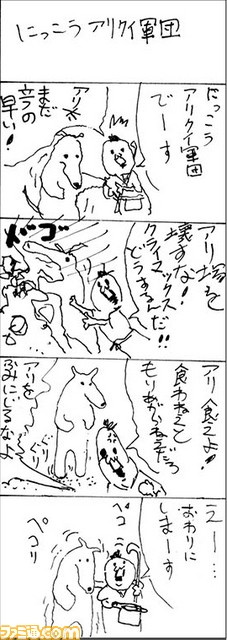 にっこうアリクイ軍団
にっこう
アリクイ軍団
でーす
アリ
まだ
立つの
早い!
アリ塚を
壊すな!
クライマックス
どうするんだ!!
バゴ
アリ食えよ!
食わねえと
もりあがらねえだろ
アリを
ふみにじるなよ
ぐり
えー…
おわりに
しまーす
ペコ
ペコリ
ファミ通.com